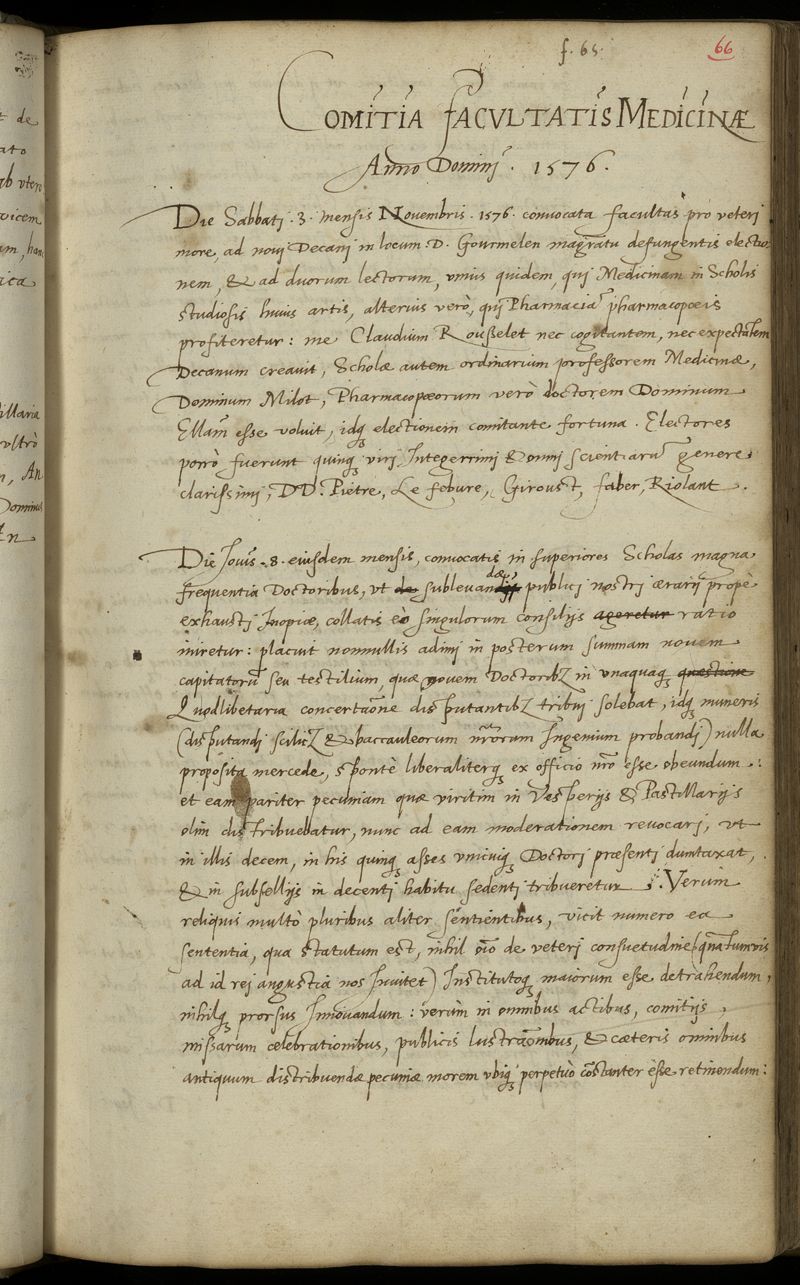 f. 65.
66
COMITIA FACVLTATIS MEDICINÆ
Anno Domini . 1576 .
Die Sabbati . 3 . mensis Nouembris . 1576 . conuocata facultas pro veteri
more, ad noui Decani in locum D. Gourmelen magratu defungentis electio
nem, & ad duorum lectorum, vnius quidem, qui Medicinam in Scholis
studiosis huius artis, alterius verò, qui Pharmaciã pharmacopœis
profiteretur : me Claudium Rousselet nec cogitantem, nec expectãtem
Decanum creauit, Scholæ autem ordinarium professorem Medicinæ,
Dominum Milot, Pharmacopæorum verò doctorem Dominum
Ellam esse voluit, idq; electionem comitante fortuna . Electores
porrò fuerunt quinq; viri Integerrimi & omni scientiarũ genere
clarissimi, DD. Pietre, Le febure, Giroust, faber, Riolant .
Die Iouis . 8 . eiusdem mensis, conuocatis in superiores Scholas magna
frequentia Doctoribus, vt de subleuandæ, publici nostri ærarij propè
exhausti Inopiæ, collatis eò singulorum consilijs ageretur ratio
iniretur : placuit nonnullis adimi in posterum summam nouem
capitatorũ seu testilium, quæ nouem Doctoribz in vnaquaq; quæstione
Quodlibetaria concertatione disputantibz tribui solebat, idq; muneris
(disputandi scilicz & baccaulеorum nrorum Ingenium probandi) nulla
proposita mercede, spontè liberaliterq; ex officio nro esse obeundum :
et eam pariter pecuniam quæ viritim in Vesperijs & Pastillarijs
olim distribuebatur, nunc ad eam moderationem reuocari, vt
in illis decem, in his quinq; asses vnicuiq; Doctori præsenti dumtaxat,
& in subsellijs in decenti habitu sedenti tribueretur . Verùm
reliquis multò pluribus aliter sentientibus, vicit numero ea
sententia, qua statutum est, nihil oĩo de veteri consuetudine (quãtumuis
ad id rei angustia nos Inuitet) Institutoq; maiorum esse detrahendum,
nihilq; prorsus Innouandum : verùm in omnibus actibus, comitijs,
missarum celebrationibus, publicis lustraõnibus, & cæteris omnibus
antiquum distribuendæ pecuniæ morem vbiq; perpetuò cõstanter esse retinendum :